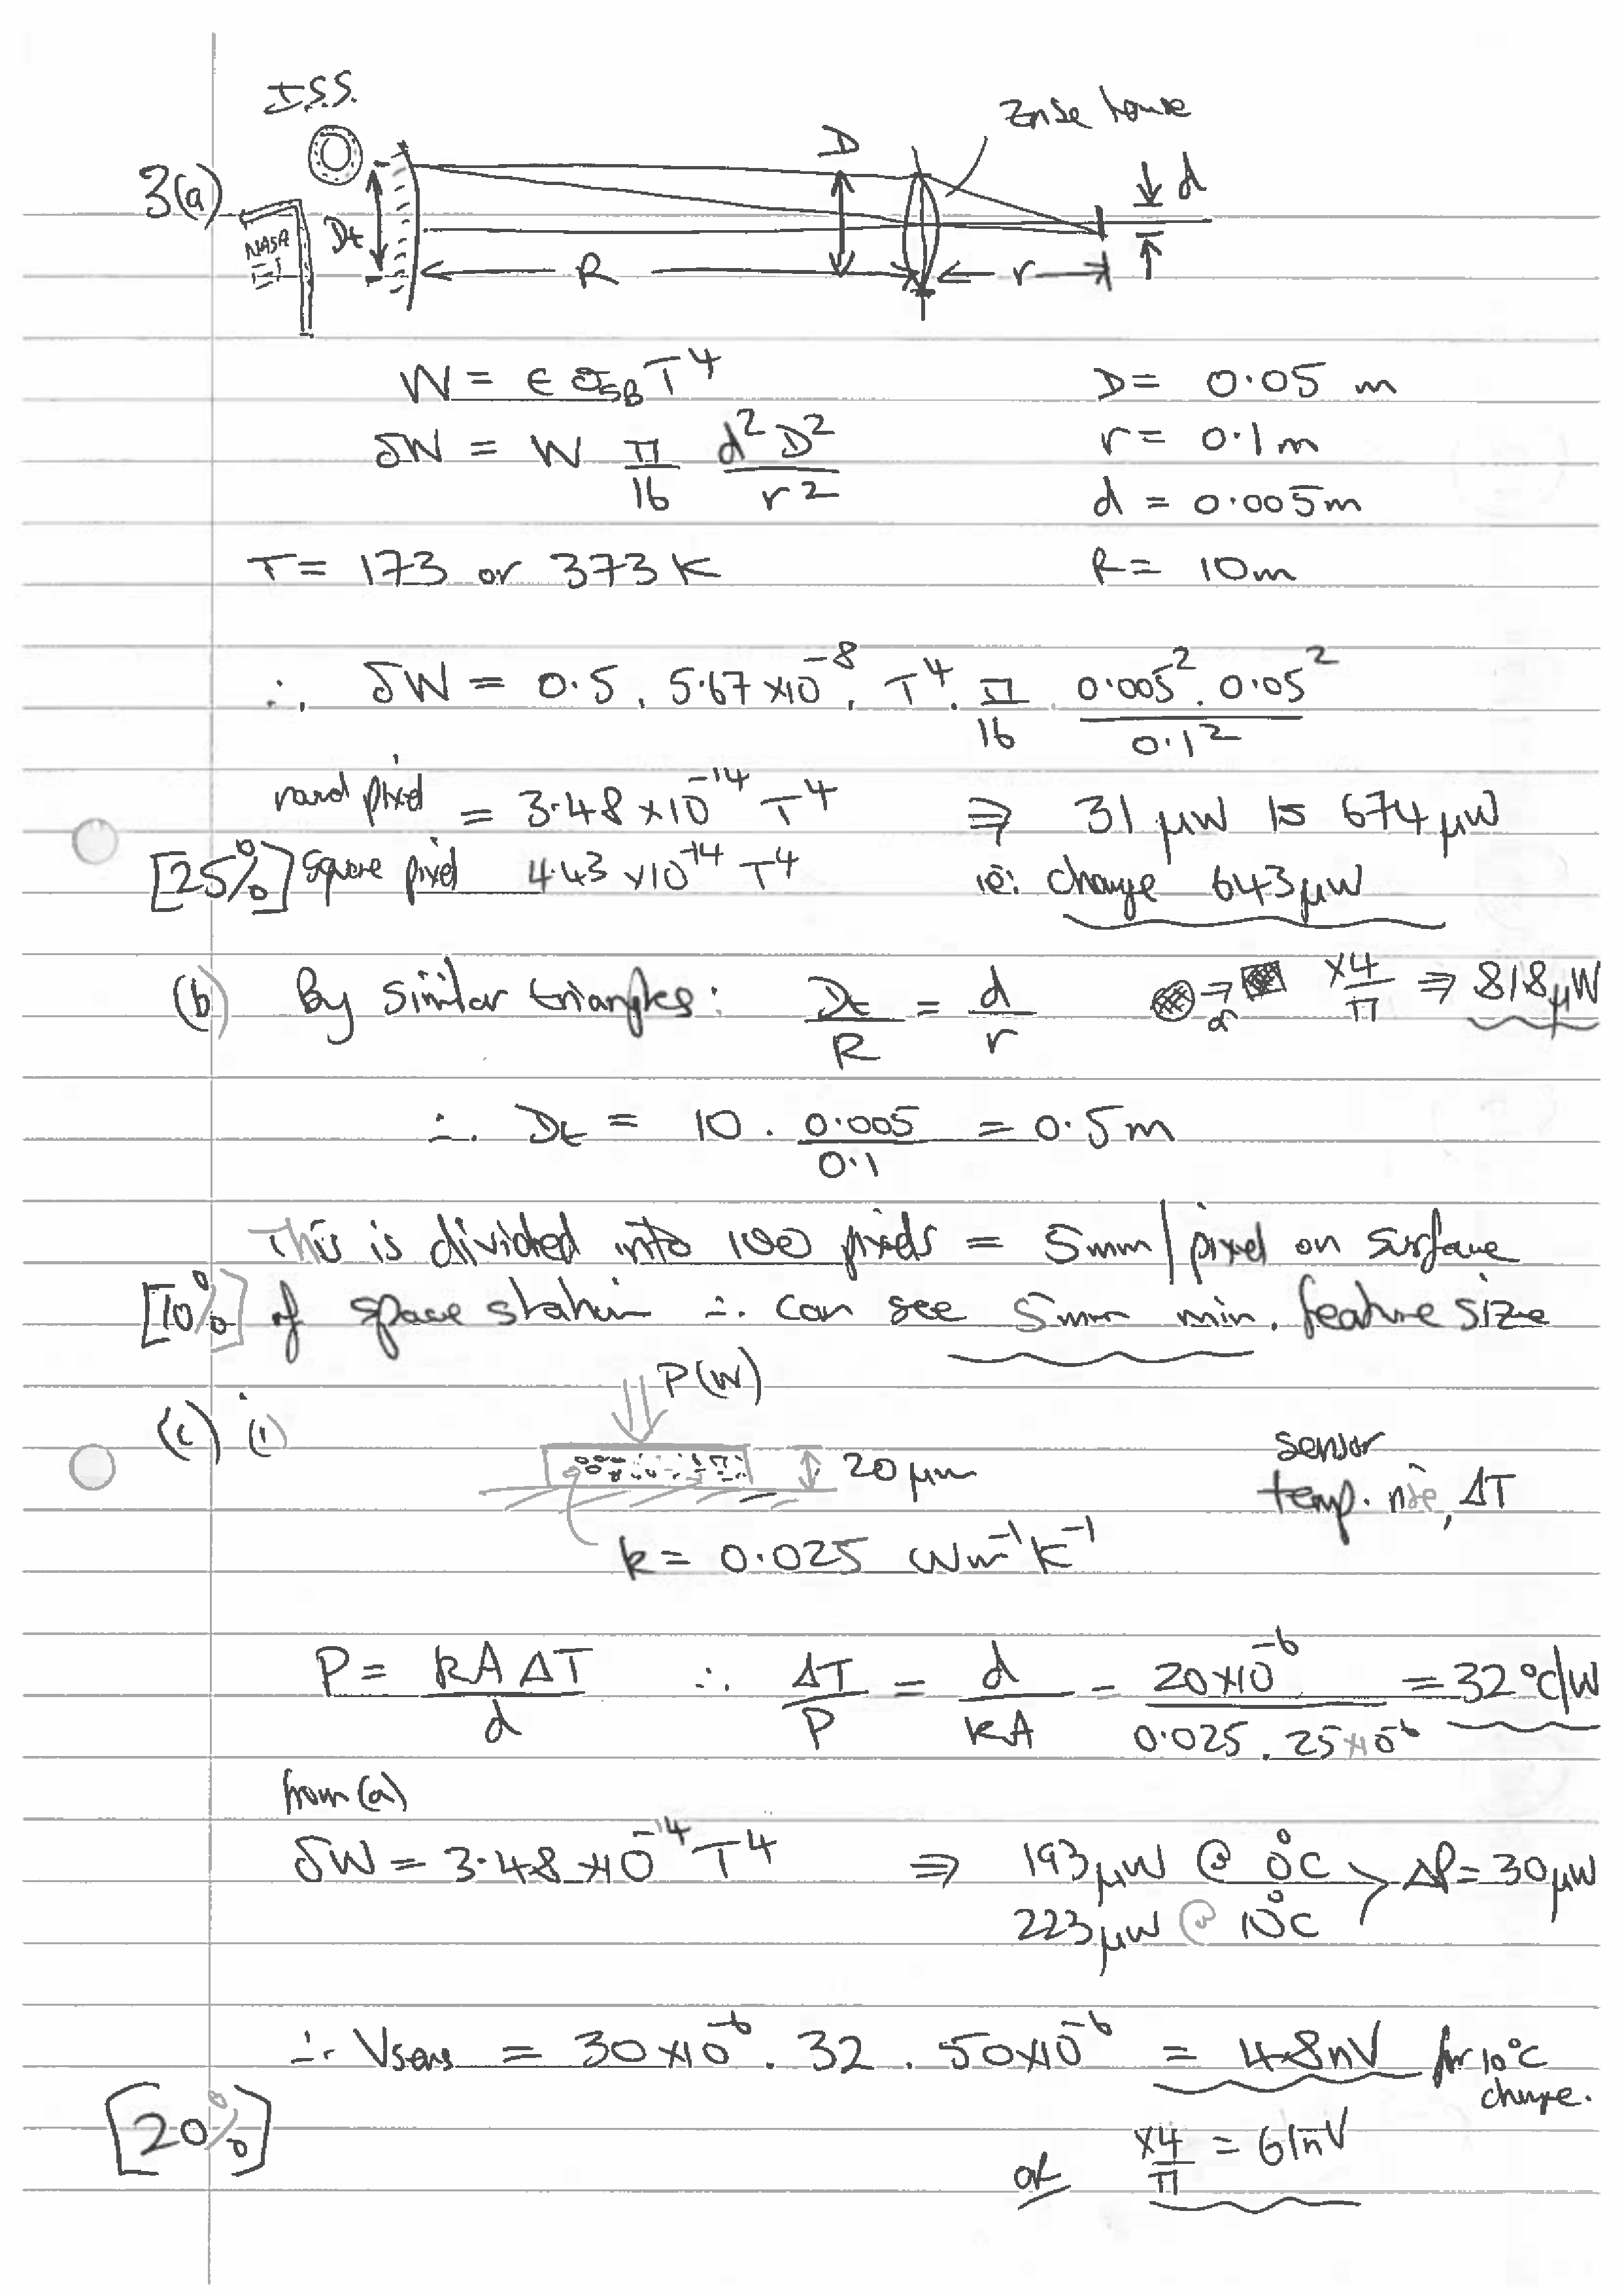 I.S.S.
ZnSe lense
3(a)
NASA
Dt
D
d
R
r
W = ϵ σSB T⁴
D = 0.05 m
δW = W π/16 d²D²/r²
r = 0.1 m
d = 0.005m
T = 173 or 373 K
R = 10m
∴ δW = 0.5 . 5.67 ×10⁻⁸ . T⁴ . π/16 . 0.005² . 0.05² / 0.1²
round pixel = 3.48 ×10⁻¹⁴ T⁴ ⇒ 31 μW to 674 μW
[25%] square pixel 4.43 ×10⁻¹⁴ T⁴ ie: change 643 μW
(b) By similar triangles: Dt/R = d/r
⇒ ×4/π ⇒ 818 μW
∴ Dt = 10 . 0.005/0.1 = 0.5 m
This is divided into 100 pixels = 5mm/pixel on surface
[10%] of space station ∴ can see 5mm min. feature size
P(W)
(c) (i)
20 μm
sensor
temp. rise, ΔT
k = 0.025 Wm⁻¹K⁻¹
P = kAΔT/d ∴ ΔT/P = d/kA = 20×10⁻⁶ / 0.025 . 25×10⁻⁶ = 32 °C/W
from (a)
δW = 3.48 ×10⁻¹⁴ T⁴ ⇒ 193 μW @ 0°C ΔP = 30 μW
223 μW @ 10°C
∴ Vsens = 30×10⁻⁶ . 32 . 50×10⁻⁶ = 48nV for 10°C
change.
[20%]
or ×4/π = 61nV